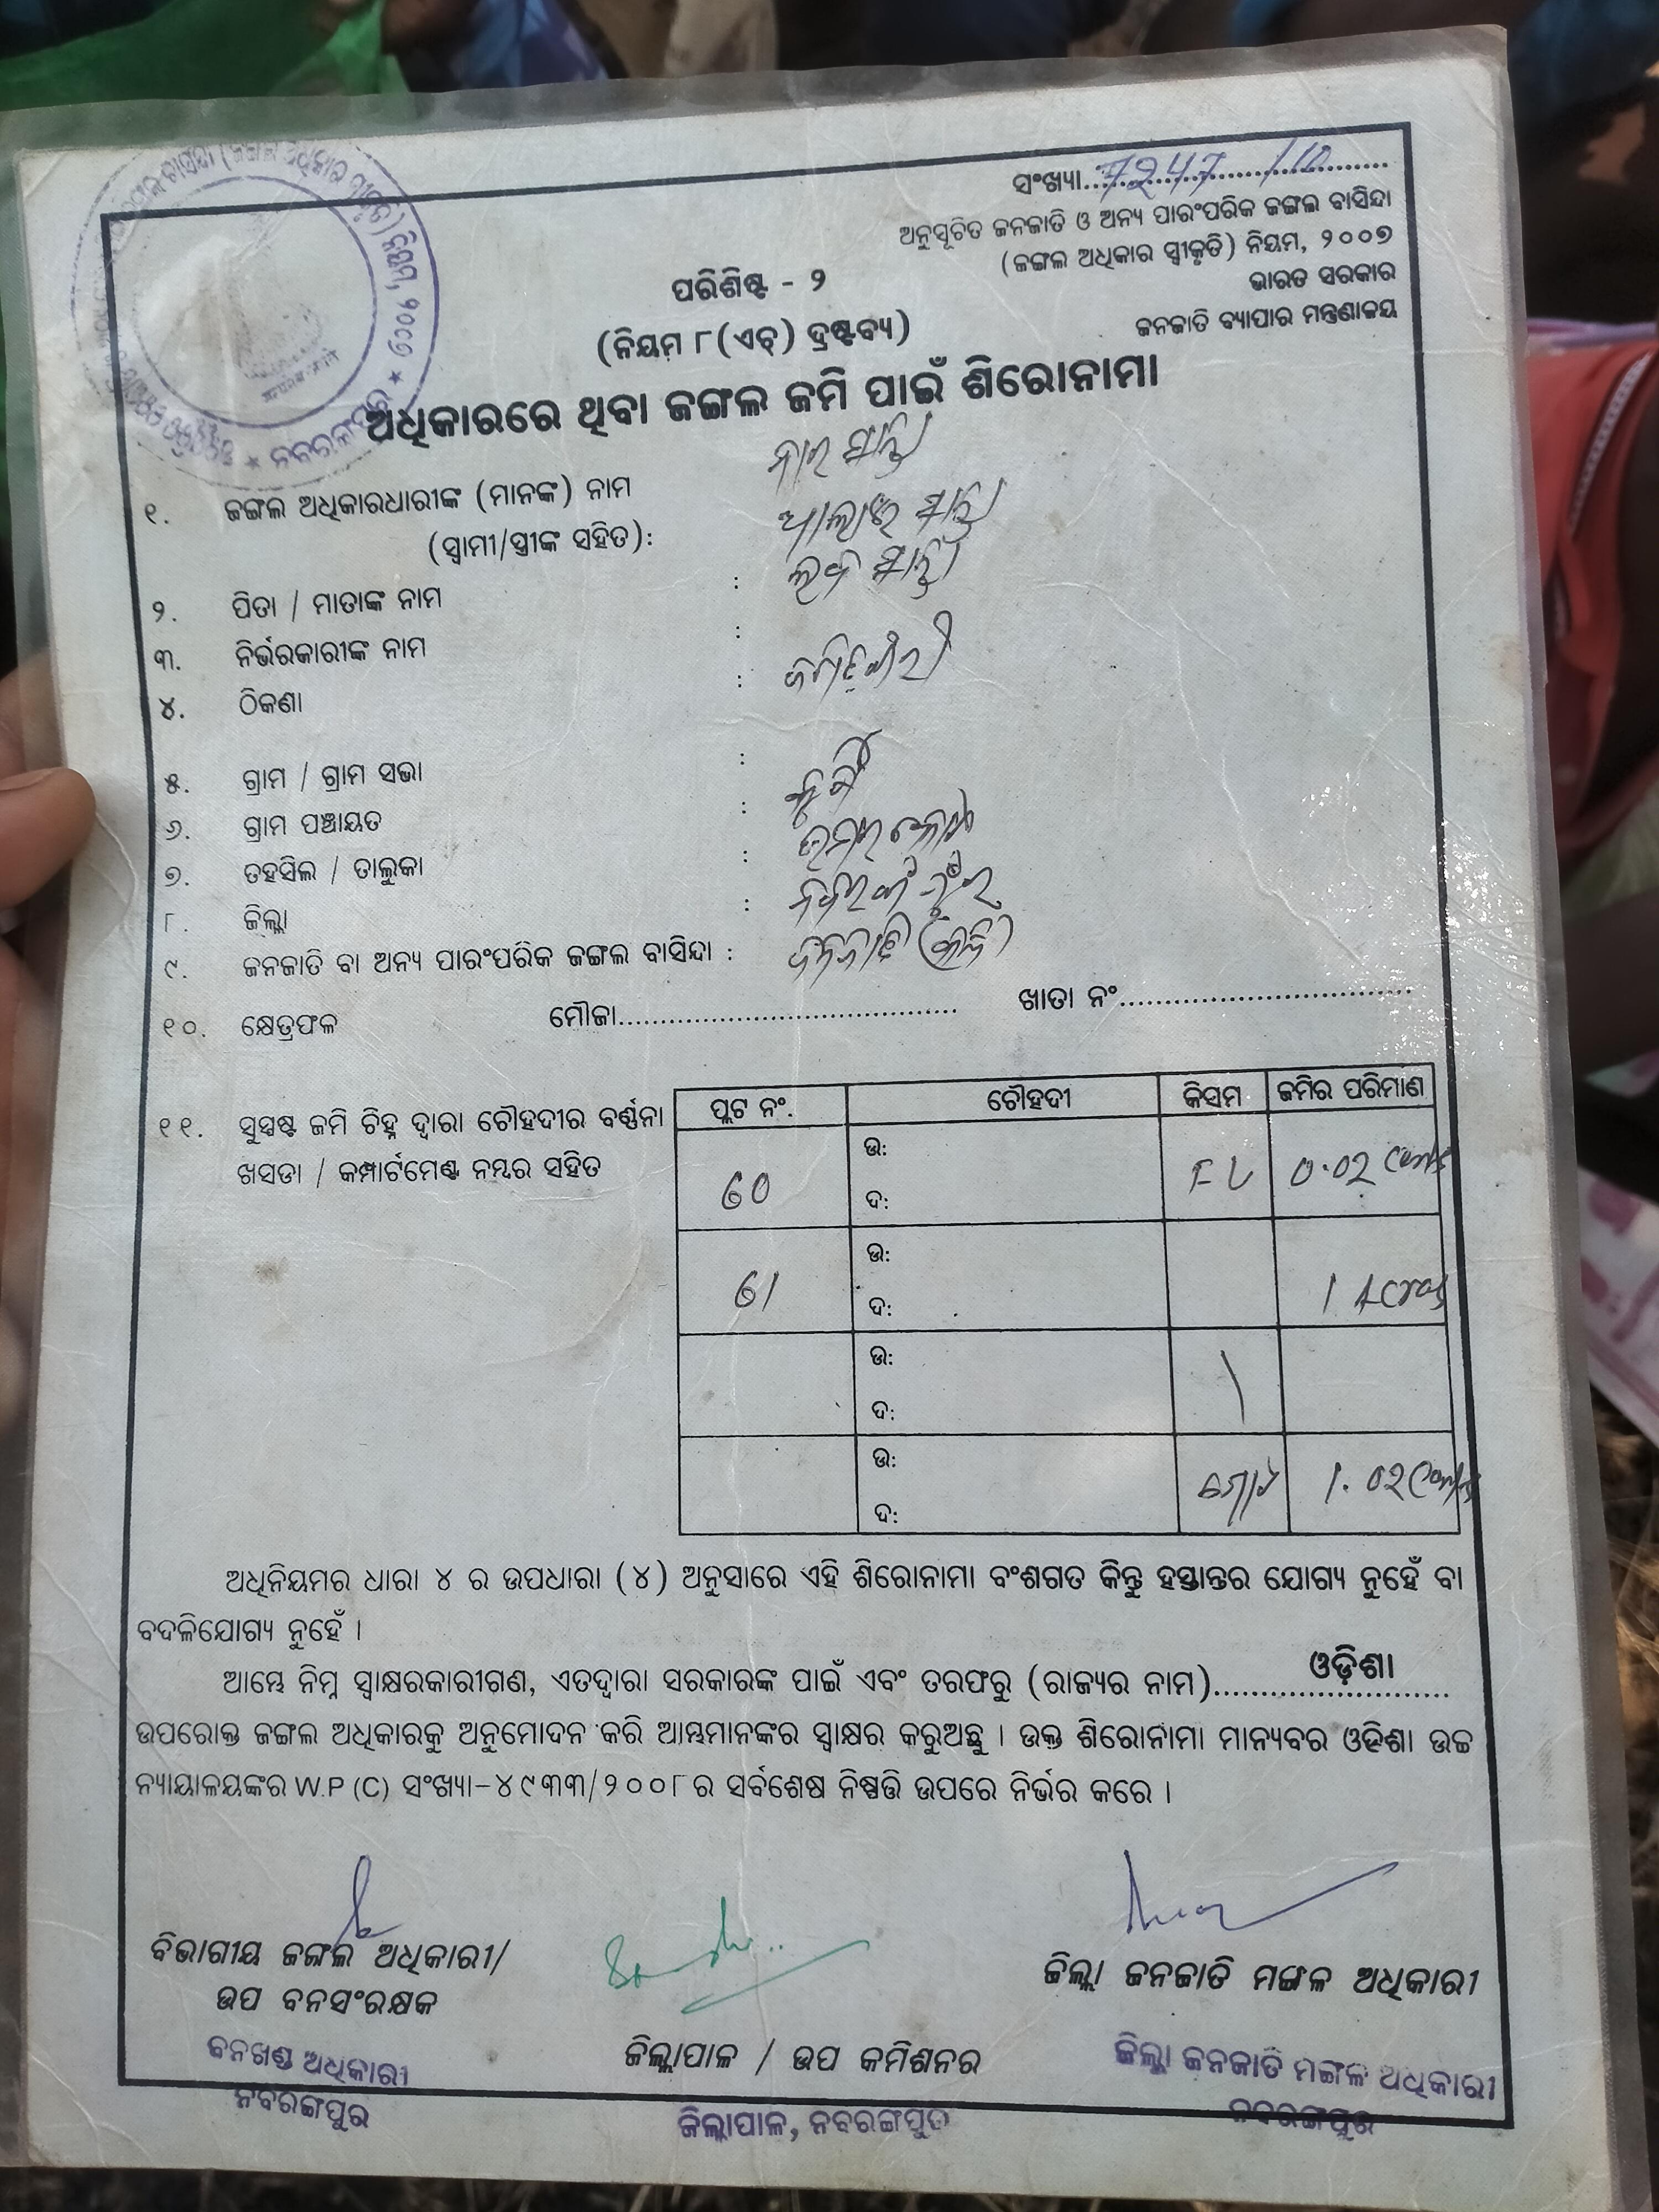 ସଂଖ୍ୟା..7247/10
ଅନୁସୂଚିତ ଜନଜାତି ଓ ଅନ୍ୟ ପାରଂପରିକ ଜଙ୍ଗଲ ବାସିନ୍ଦା
(ଜଙ୍ଗଲ ଅଧିକାର ସ୍ୱୀକୃତି) ନିୟମ, ୨୦୦୭
ଭାରତ ସରକାର
ଜନଜାତି ବ୍ୟାପାର ମନ୍ତ୍ରଣାଳୟ
ପରିଶିଷ୍ଟ - ୨
(ନିୟମ ୮(ଏଚ୍) ଦ୍ରଷ୍ଟବ୍ୟ)
ଅଧିକାରରେ ଥିବା ଜଙ୍ଗଲ ଜମି ପାଇଁ ଶିରୋନାମା
୧. ଜଙ୍ଗଲ ଅଧିକାରଧାରୀଙ୍କ (ମାନଙ୍କ) ନାମ
(ସ୍ୱାମୀ/ସ୍ତ୍ରୀଙ୍କ ସହିତ):
୨. ପିତା / ମାତାଙ୍କ ନାମ :
୩. ନିର୍ଭରକାରୀଙ୍କ ନାମ :
୪. ଠିକଣା :
୫. ଗ୍ରାମ / ଗ୍ରାମ ସଭା :
୬. ଗ୍ରାମ ପଞ୍ଚାୟତ :
୭. ତହସିଲ / ତାଲୁକା :
୮. ଜିଲ୍ଲା :
୯. ଜନଜାତି ବା ଅନ୍ୟ ପାରଂପରିକ ଜଙ୍ଗଲ ବାସିନ୍ଦା :
୧୦. କ୍ଷେତ୍ରଫଳ ମୌଜା........ ଖାତା ନଂ........
୧୧. ସୁସ୍ପଷ୍ଟ ଜମି ଚିହ୍ନ ଦ୍ୱାରା ଚୌହଦୀର ବର୍ଣ୍ଣନା
ଖସଡା / କମ୍ପାର୍ଟମେଣ୍ଟ ନମ୍ବର ସହିତ
ପ୍ଲଟ ନଂ. ଚୌହଦୀ କିସମ ଜମିର ପରିମାଣ
60 ଉ: 0.02 Cents
ଦ:
61 ଉ: 1 Acres
ଦ:
ଉ:
ଦ:
ଉ: 1.02 Cents
ଦ:
ଅଧିନିୟମର ଧାରା ୪ ର ଉପଧାରା (୪) ଅନୁସାରେ ଏହି ଶିରୋନାମା ବଂଶଗତ କିନ୍ତୁ ହସ୍ତାନ୍ତର ଯୋଗ୍ୟ ନୁହେଁ ବା
ବଦଳିଯୋଗ୍ୟ ନୁହେଁ ।
ଆମ୍ଭେ ନିମ୍ନ ସ୍ୱାକ୍ଷରକାରୀଗଣ, ଏତଦ୍ୱାରା ସରକାରଙ୍କ ପାଇଁ ଏବଂ ତରଫରୁ (ରାଜ୍ୟର ନାମ)....ଓଡ଼ିଶା....
ଉପରୋକ୍ତ ଜଙ୍ଗଲ ଅଧିକାରକୁ ଅନୁମୋଦନ କରି ଆମ୍ଭମାନଙ୍କର ସ୍ୱାକ୍ଷର କରୁଅଛୁ । ଉକ୍ତ ଶିରୋନାମା ମାନ୍ୟବର ଓଡିଶା ଉଚ୍ଚ
ନ୍ୟାୟାଳୟଙ୍କର W.P (C) ସଂଖ୍ୟା-୪୯୩୩/୨୦୦୮ ର ସର୍ବଶେଷ ନିଷ୍ପତ୍ତି ଉପରେ ନିର୍ଭର କରେ ।
ବିଭାଗୀୟ ଜଙ୍ଗଲ ଅଧିକାରୀ/
ଉପ ବନସଂରକ୍ଷକ
ବନଖଣ୍ଡ ଅଧିକାରୀ
ନବରଙ୍ଗପୁର
ଜିଲ୍ଲାପାଳ / ଉପ କମିଶନର
ଜିଲ୍ଲାପାଳ, ନବରଙ୍ଗପୁର
ଜିଲ୍ଲା ଜନଜାତି ମଙ୍ଗଳ ଅଧିକାରୀ
ଜିଲ୍ଲା ଜନଜାତି ମଙ୍ଗଳ ଅଧିକାରୀ
ନବରଙ୍ଗପୁର